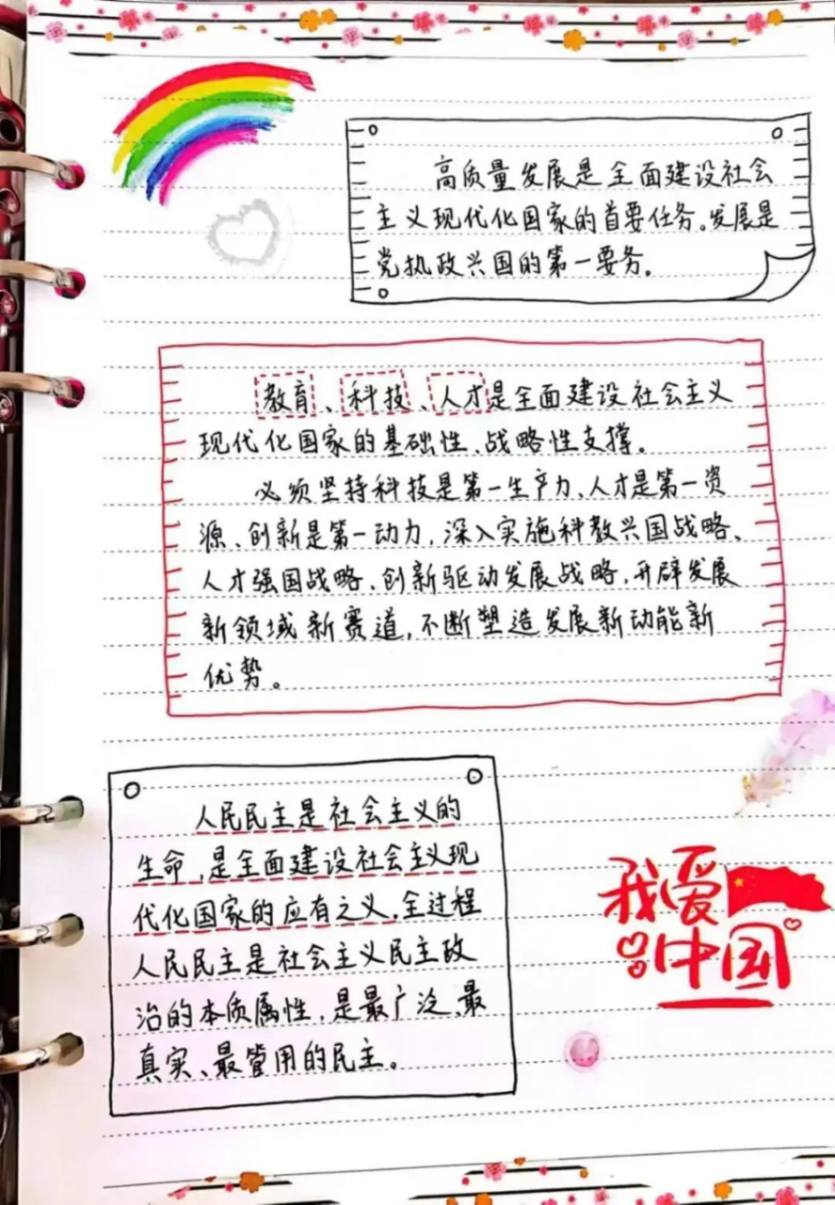 高质量发展是全面建设社会
主义现代化国家的首要任务。发展是
党执政兴国的第一要务。
教育、科技、人才是全面建设社会主义
现代化国家的基础性、战略性支撑。
必须坚持科技是第一生产力、人才是第一资
源、创新是第一动力,深入实施科教兴国战略、
人才强国战略、创新驱动发展战略,开辟发展
新领域新赛道,不断塑造发展新动能新
优势。
人民民主是社会主义的
生命,是全面建设社会主义现
代化国家的应有之义。全过程
人民民主是社会主义民主政
治的本质属性,是最广泛、最
真实、最管用的民主。
我爱
中国